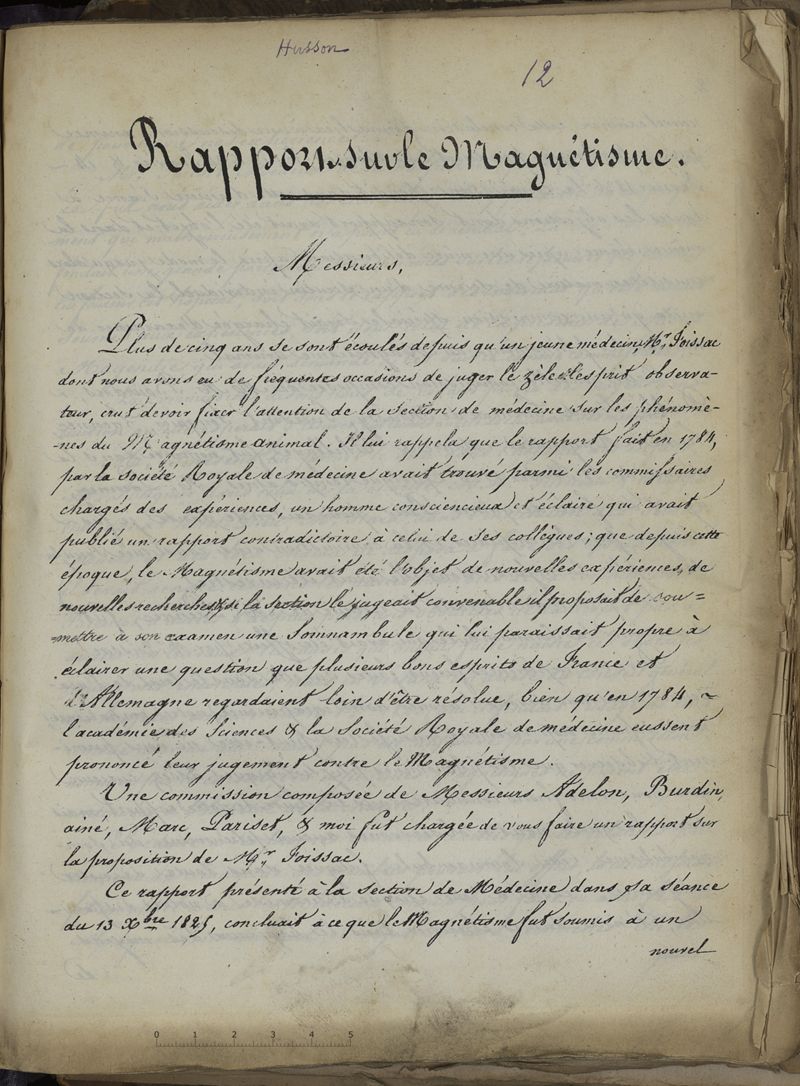 Husson
12
Rapport sur le Magnétisme.
Messieurs,
Plus de cinq ans se sont écoulés depuis qu'un jeune médecin, Mr. Foissac
dont nous avons eu de fréquentes occasions de juger le zèle & l'esprit observa-
teur, crut devoir fixer l'attention de la section de médecine sur les phénomè-
-nes du Magnétisme animal. Il lui rappela que le rapport fait en 1784,
par la société Royale de médecine avait trouvé parmi les commissaires
chargés des expériences, un homme consciencieux et éclairé qui avait
publié un rapport contradictoire à celui de ses collègues; que depuis cette
époque, le Magnétisme avait été l'objet de nouvelles expériences, de
nouvelles recherches, & si la section le jugeait convenable il proposait de sou=
=mettre à son examen une Somnambule qui lui paraissait propre à
éclairer une question que plusieurs bons esprits de France et
d'Allemagne regardaient loin d'être résolue, bien qu'en 1784, ~
l'académie des Sciences & la Société Royale de médecine eussent
prononcé leur jugement contre le Magnétisme.
Une commission composée de Messieurs Adelon, Burdin,
ainé, Marc, Pariset, & moi fut chargée de vous faire un rapport sur
la proposition de Mr. Foissac.
Ce rapport présenté à la section de Médecine dans sa séance
du 13 Xbre 1825, concluait à ce que le Magnétisme fut soumis à un
nouvel
0 1 2 3 4 5